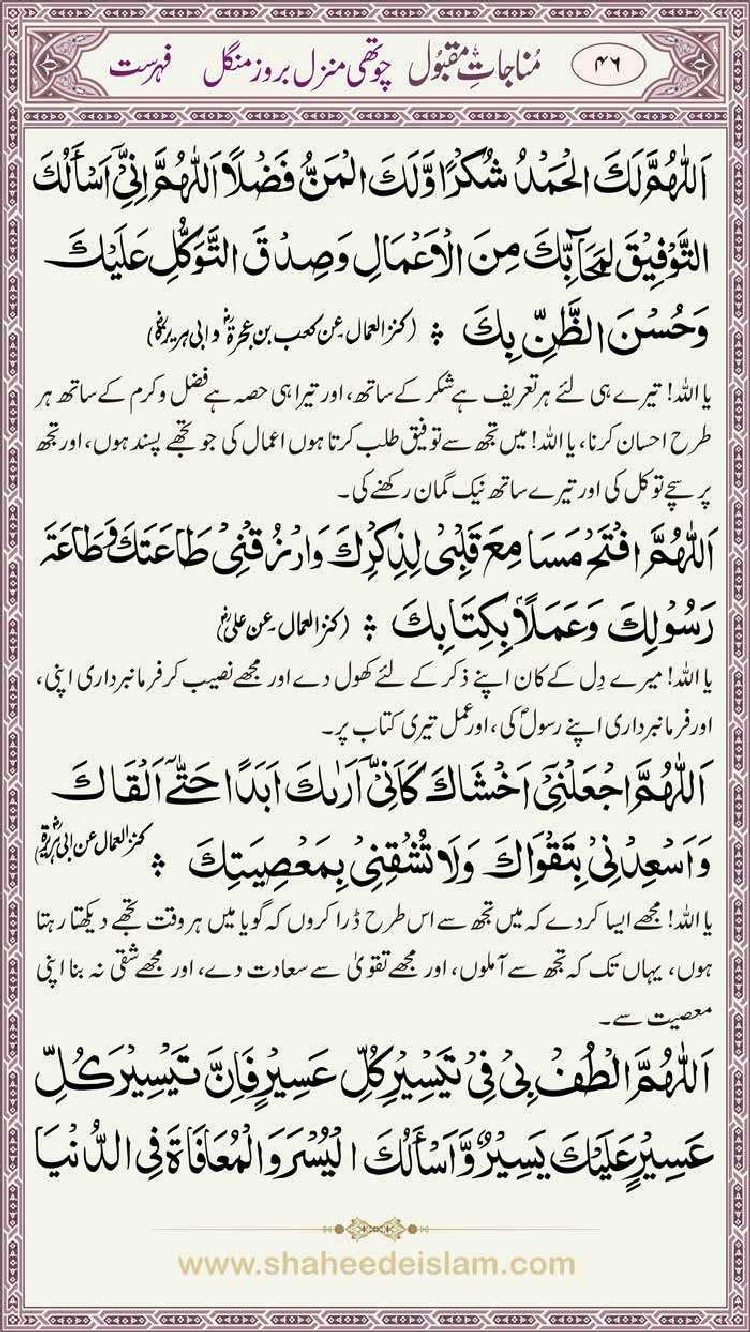 ۴۶ مُناجاتِ مقبُول چوتھی منزل بروز منگل فہرست
اَللّٰهُمَّ لَكَ الْحَمْدُ شُكْرًا وَّلَكَ الْمَنُّ فَضْلًا اَللّٰهُمَّ اِنِّيْٓ اَسْأَلُكَ
التَّوْفِيْقَ لِمَحَآبِّكَ مِنَ الْاَعْمَالِ وَصِدْقَ التَّوَكُّلِ عَلَيْكَ
وَحُسْنَ الظَّنِّ بِكَ ؞ (کنز العمال۔عن کعب بن عجرۃؓ و ابی ہریرۃؓ)
یا اللہ! تیرے ہی لئے ہر تعریف ہے شکر کے ساتھ، اور تیرا ہی حصہ ہے فضل و کرم کے ساتھ ہر
طرح احسان کرنا، یا اللہ! میں تجھ سے توفیق طلب کرتا ہوں اعمال کی جو تجھے پسند ہوں، اور تجھ
پر سچے توکل کی اور تیرے ساتھ نیک گمان رکھنے کی۔
اَللّٰهُمَّ افْتَحْ مَسَامِعَ قَلْبِيْ لِذِكْرِكَ وَارْزُقْنِيْ طَاعَتَكَ وَطَاعَةَ
رَسُوْلِكَ وَعَمَلًا بِكِتَابِكَ ؞ (کنز العمال۔عن علیؓ)
یا اللہ! میرے دِل کے کان اپنے ذکر کے لئے کھول دے اور مجھے نصیب کر فرمانبرداری اپنی،
اور فرمانبرداری اپنے رسولؐ کی، اور عمل تیری کتاب پر۔
اَللّٰهُمَّ اجْعَلْنِيْٓ اَخْشَاكَ كَاَنِّيْٓ اَرٰىكَ اَبَدًا حَتّٰٓى اَلْقَاكَ
وَاَسْعِدْنِيْ بِتَقْوَاكَ وَلَا تُشْقِنِيْ بِمَعْصِيَتِكَ ؞ (کنز العمال عن ابی ہریرۃؓ)
یا اللہ! مجھے ایسا کر دے کہ میں تجھ سے اس طرح ڈرا کروں کہ گویا میں ہر وقت تجھے دیکھتا رہتا
ہوں، یہاں تک کہ تجھ سے آ ملوں، اور مجھے تقویٰ سے سعادت دے، اور مجھے شقی نہ بنا اپنی
معصیت سے۔
اَللّٰهُمَّ الْطُفْ بِيْ فِيْ تَيْسِيْرِ كُلِّ عَسِيْرٍ فَاِنَّ تَيْسِيْرَ كُلِّ
عَسِيْرٍ عَلَيْكَ يَسِيْرٌ وَّاَسْأَلُكَ الْيُسْرَ وَالْمُعَافَاةَ فِي الدُّنْيَا
www.shaheedeislam.com